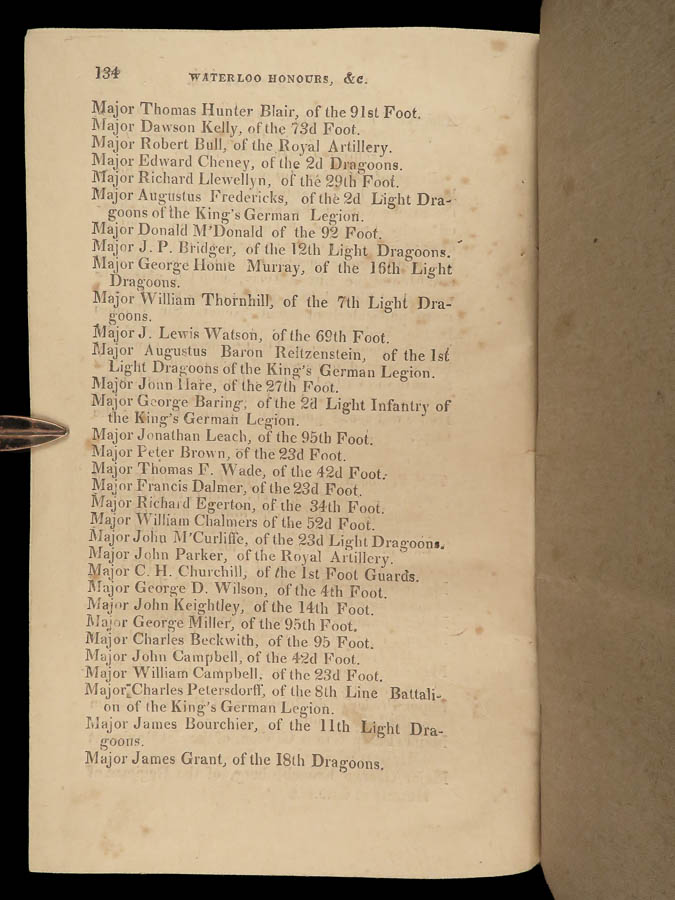 134 WATERLOO HONOURS, &c.
Major Thomas Hunter Blair, of the 91st Foot.
Major Dawson Kelly, of the 73d Foot.
Major Robert Bull, of the Royal Artillery.
Major Edward Cheney, of the 2d Dragoons.
Major Richard Llewellyn, of the 29th Foot.
Major Augustus Fredericks, of the 2d Light Dra-
goons of the King's German Legion.
Major Donald M'Donald of the 92 Foot.
Major J. P. Bridger, of the 12th Light Dragoons.
Major George Home Murray, of the 16th Light
Dragoons.
Major William Thornhill, of the 7th Light Dra-
goons.
Major J. Lewis Watson, of the 69th Foot.
Major Augustus Baron Reitzenstein, of the 1st
Light Dragoons of the King's German Legion.
Major John Hare, of the 27th Foot.
Major George Baring, of the 2d Light Infantry of
the King's German Legion.
Major Jonathan Leach, of the 95th Foot.
Major Peter Brown, of the 23d Foot.
Major Thomas F. Wade, of the 42d Foot.
Major Francis Dalmer, of the 23d Foot.
Major Richard Egerton, of the 34th Foot.
Major William Chalmers of the 52d Foot.
Major John M'Curliffe, of the 23d Light Dragoons.
Major John Parker, of the Royal Artillery.
Major C. H. Churchill, of the 1st Foot Guards.
Major George D. Wilson, of the 4th Foot.
Major John Keightley, of the 14th Foot.
Major George Miller, of the 95th Foot.
Major Charles Beckwith, of the 95 Foot.
Major John Campbell, of the 42d Foot.
Major William Campbell, of the 23d Foot.
Major Charles Petersdorff, of the 8th Line Battali-
on of the King's German Legion.
Major James Bourchier, of the 11th Light Dra-
goons.
Major James Grant, of the 18th Dragoons.